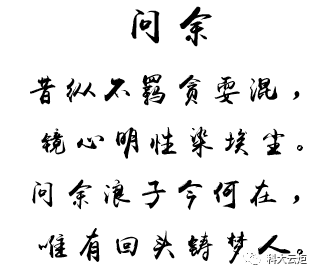 问余
昔纵不羁贪耍混，
镜心明性染埃尘。
问余浪子今何在，
唯有回头铸梦人。
科大云炬